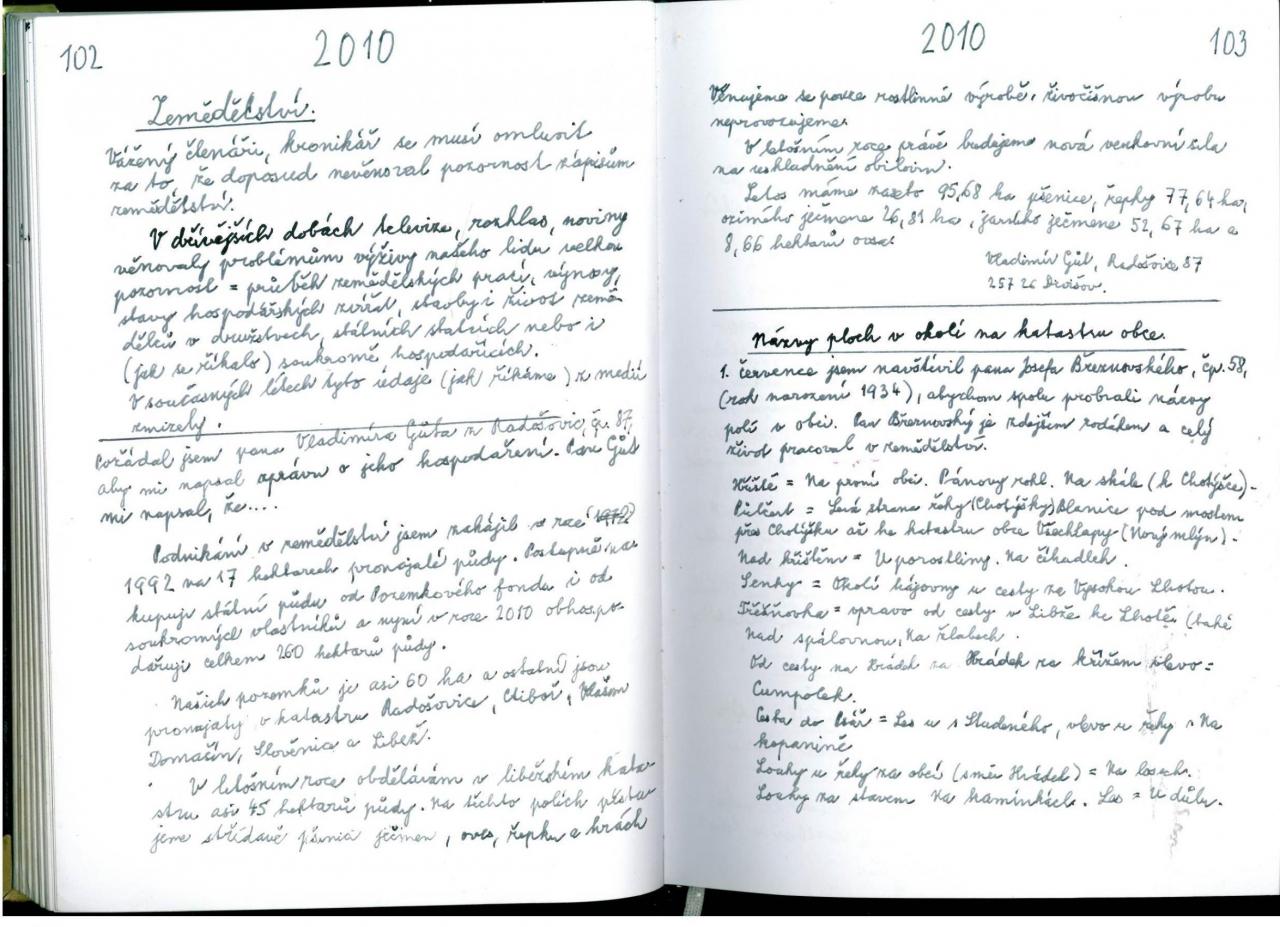 102
2010
Zemědělství.
Vážený čtenáři, kronikář se musí omluvit
za to, že doposud nevěnoval pozornost zápisům
zemědělství.
V dřívějších dobách televize, rozhlas, noviny
věnovaly problémům výživy našeho lidu velkou
pozornost = průběh zemědělských prací, výnosy,
stavy hospodářských zvířat, stavby i život země
dělců v družstvech, státních statcích nebo i
(jak se říkalo) soukromě hospodařících.
V současných létech tyto údaje (jak říkáme) z medií
zmizely.
Požádal jsem pana Vladimíra Gůta z Radošovic, čp. 87,
aby mi napsal zprávu o jeho hospodaření. Pan Gůt
mi napsal, že....
Podnikání v zemědělství jsem zahájil v roce
1992 na 17 hektarech pronajaté půdy. Postupně na-
kupuji státní půdu od Pozemkového fondu i od
soukromých vlastníků a nyní v roce 2010 obhospo-
dařuji celkem 260 hektarů půdy.
Našich pozemků je asi 60 ha a ostatní jsou
pronajaty v katastru Radošovice, Ctiboř, Vlašim
Domašín, Slověnice a Libež.
V letošním roce obdělávám v libežském kata-
stru asi 45 hektarů půdy. Na těchto polích pěstu-
jeme střídavě pšenici ječmen, oves, řepku a hrách
2010
103
Věnujeme se pouze rostlinné výrobě, živočišnou výrobu
neprovozujeme.
V letošním roce právě budujeme nová venkovní sila
na uskladnění obilovin.
Letos máme zaseto 95,68 ha pšenice, řepky 77,64 ha,
ozimého ječmene 26,81 ha, jarního ječmene 52,67 ha a
8,66 hektarů ovsa.
Vladimír Gůt, Radošovice 87
257 26 Divišov.
Názvy ploch v okolí na katastru obce.
1. července jsem navštívil pana Josefa Březnovského, čp. 58,
(rok narození 1934), abychom spolu probrali názvy
polí v obci. Pan Březnovský je zdejším rodákem a celý
život pracoval v zemědělství.
Hřiště = Na první obci. Pánovy rohl. Na skále (k Chotýšce).
Půlčart = Levá strana řeky (Chotýšky) Blanice pod mostem
přes Chotýšku až ke katastru obce Všechlapy (Nový mlýn).
Nad hřištěm = U porostliny. Na čihadlech.
Senky = Okolí hájovny u cesty za Vysokou Lhotou.
Třešňovka = vpravo od cesty v Libže ke Lhotě (také
nad spálovnou, Na žlabech.
Od cesty na Hrádek za Hrádek za křížem vlevo =
Cumpolek.
Cesta do Psář = Les u s Studeného, vlevo u řeky = Na
kopanině
Louky u řeky za obcí (směr Hrádek) = Na losech.
Louky za stavem Na kamínkách. Les = U důlu.